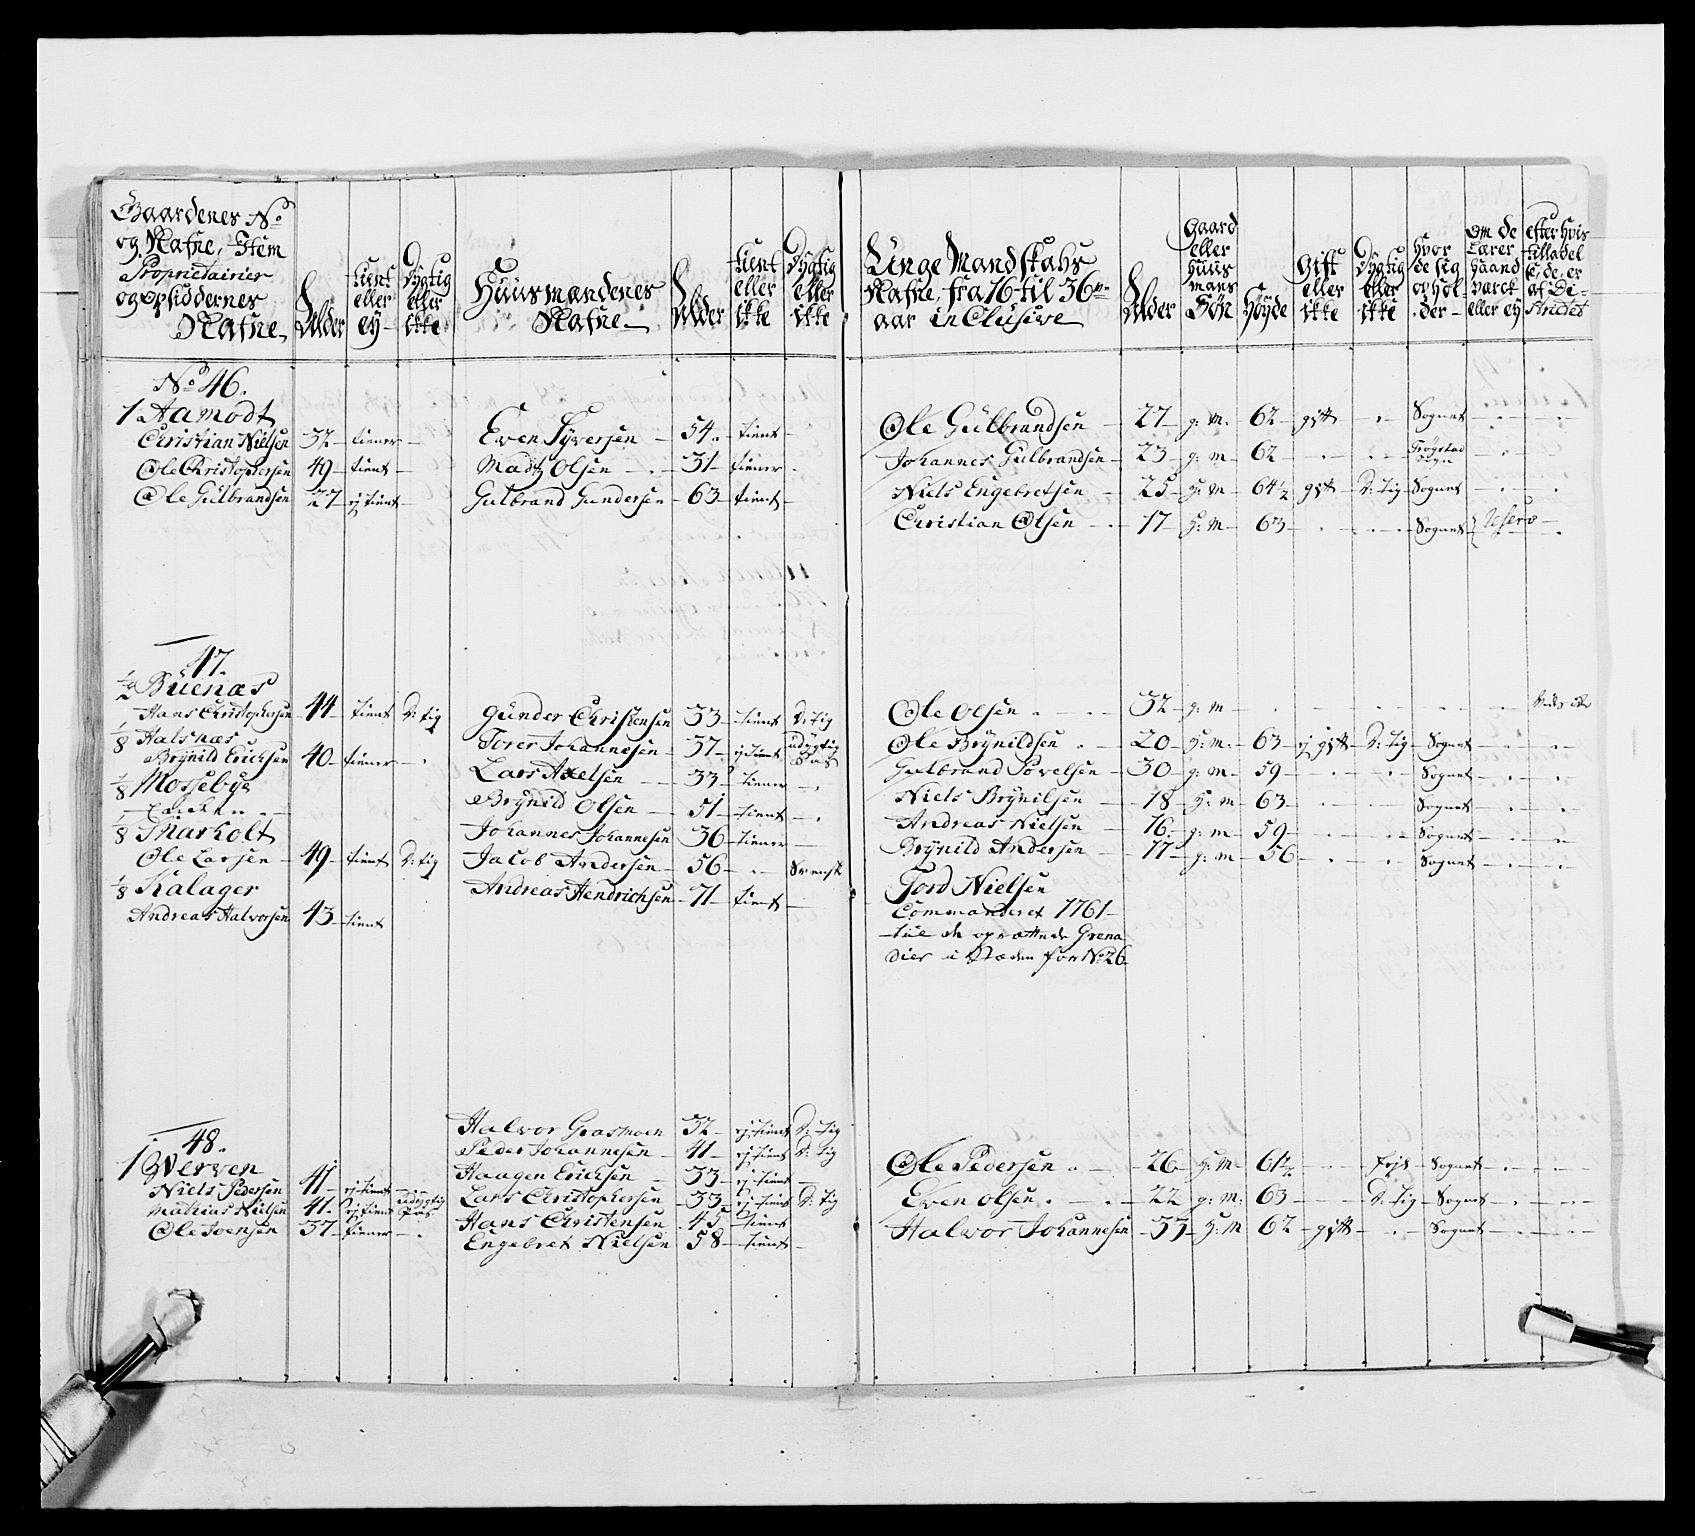 Gaardenes No
og Nafne, Item
Proprietairier
og opsiddernes
Nafne
Alder
tient
eller
ey
Dygtig
eller
ikke
Huusmændenes
Nafne
Alder
tient
eller
ikke
Dygtig
eller
ikke
Unge Mandskabs
Nafne, fra 16 til 36
aar inClusive
Alder
Gaard
eller
huus
mans
Søn
Høyde
Gift
eller
ikke
Dygtig
eller
ikke
hvor
de sig
ophol-
der
Om de
Lærer
haand
værck
eller ey
efter hvis
tilladel
se de er
af Di-
strictet
No 46.
1 Aamodt
Christian Nielsen 32 tiener
Ole Christophersen 49 tient
Ole Gulbrandsen 27 ej tient
Even Syversen 54 tient
Madtz Olsen 31 tiener
Gulbrand Gundersen 63 tient
Ole Gulbrandsen 27 g: m. 62 gift Sognet
Johannes Gulbrandsen 23 g: m 62 Trøgstad Sogn
Niels Engebretsen 25 h: m 64½ gift D: tig Sognet
Christian Olsen 17 h: m 63 Sognet
47.
½ Buenæs
Hans Christophersen 44 tient D: tig
⅛ Halsnæs
Brynild Erichsen 40 tiener
⅛ Mossebye
⅛ Skarholt
Ole Larsen 49 tient D: tig
⅛ Kalager
Andreas Halvorsen 43 tient
Gunder Christensen 33 tient D: tig
Torer Johannesen 37 ej tient udygtig Pas
Lars Axelsen 33 tiener
Brynild Olsen 51 tient
Johannes Johannesen 36 tiener
Jacob Andersen 56 Svensk
Andreas Hendrichsen 71 tient
Ole Olsen 32 g: m
Ole Brynildsen 20 h: m. 63 ej gift D: tig Sognet
Gulbrand Povelsen 30 g: m 59 Sognet
Niels Brynilsen 18 h: m 63 Sognet
Andreas Nielsen 16 g: m 59 Sognet
Brynild Andersen 17 g: m 56 Sognet
Tord Nielsen
Commanderet 1761
til de oprættede Grena
dier i Stæden for No 26
48.
1 Qverven
Niels Pedersen 41 ej tient
Mathias Nielsen 41 ej tient udygtig Pas
Ole Joensen 37 tiener
Halvor Grasmoen 32 ej tient D: tig
Peder Johannesen 41 ej tient D: tig
Haagen Erichsen 33 ej tient
Lars Christophersen 33 ej tient D: tig
Hans Christensen 45 tient
Engebret Nielsen 58 tient
Ole Pedersen 26 h: m 61½ Sognet
Even Olsen 22 g: m: 63 D: tig Sognet
Halvor Johannesen 33 h: m 62 gift Sognet